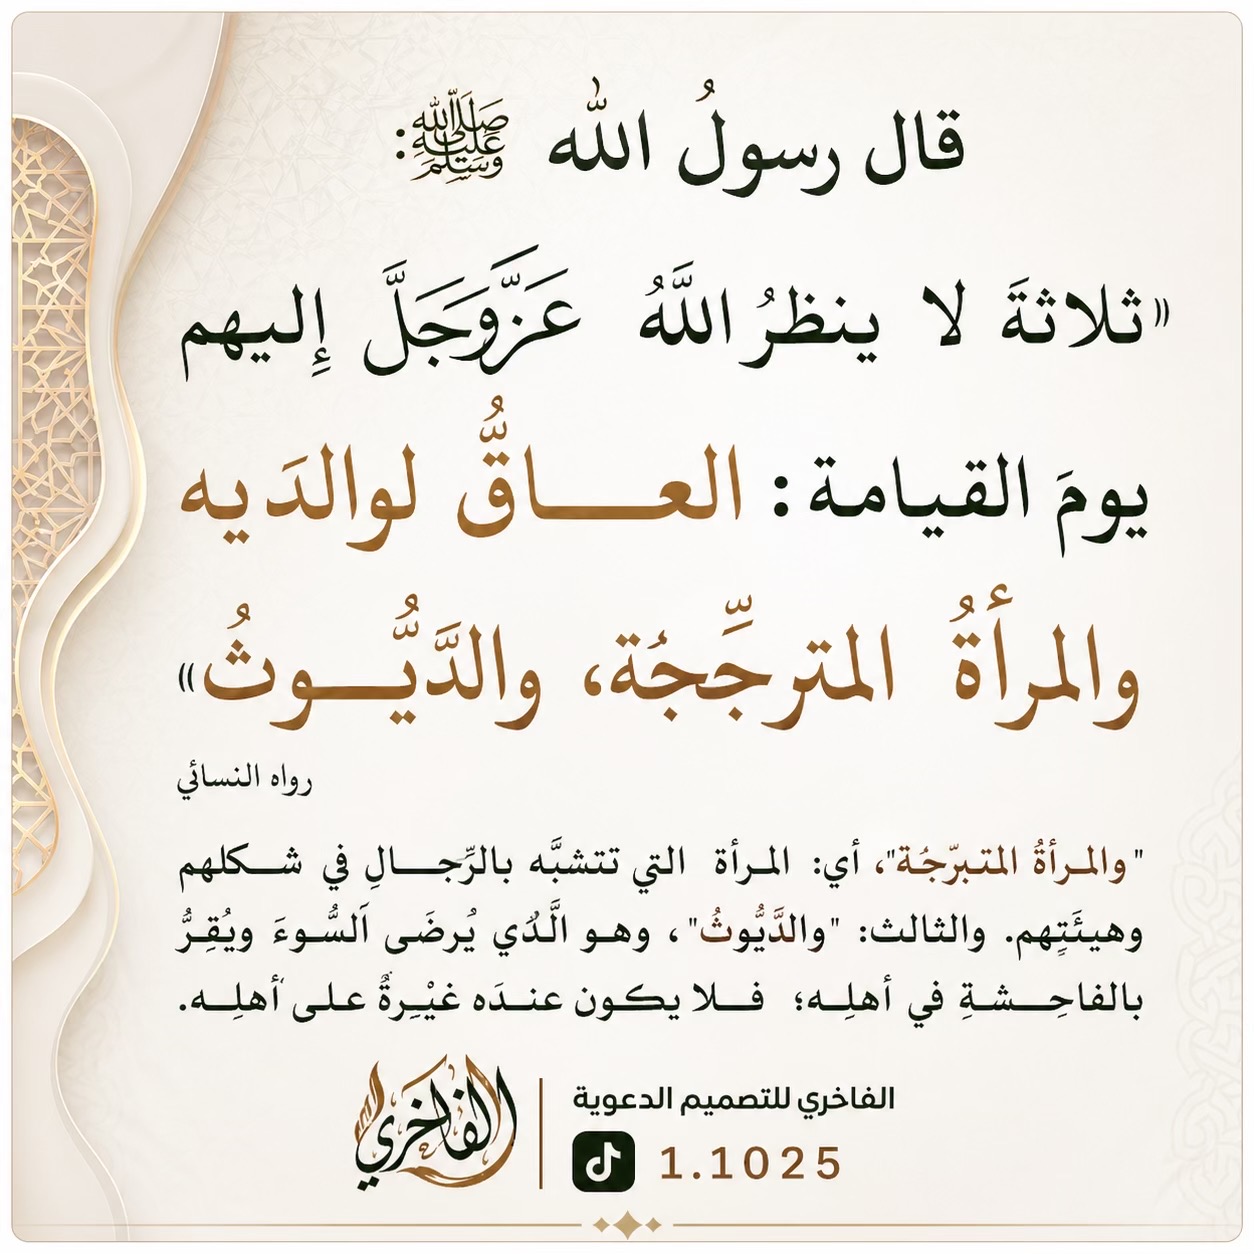 قال رسولُ الله ﷺ:
«ثلاثةَ لا ينظرُ اللَّهُ عَزَّوَجَلَّ إليهم
يومَ القيامة: العـــاقُّ لوالدَيه
والمرأةُ المترجِّجُة، والدَّيُّـــوثُ»
رواه النسائي
"والمـرأةُ المتـبرّجُة"، أي: المـرأة التي تتشبَّه بالرِّجـــالِ في شـــكلهم
وهيئَتِهم. والثالث: "والدَّيُّوثُ"، وهـو الَّذي يُرضَى اَلسُّـوءَ ويُقِـرُّ
بالفاحِـــشـةِ في أهلِـه؛ فـــلا يكـون عنـدَه غيْـرِةٌ عـلى أهلِـــه.
الفاخري
الفاخري للتصميم الدعوية
1.1025